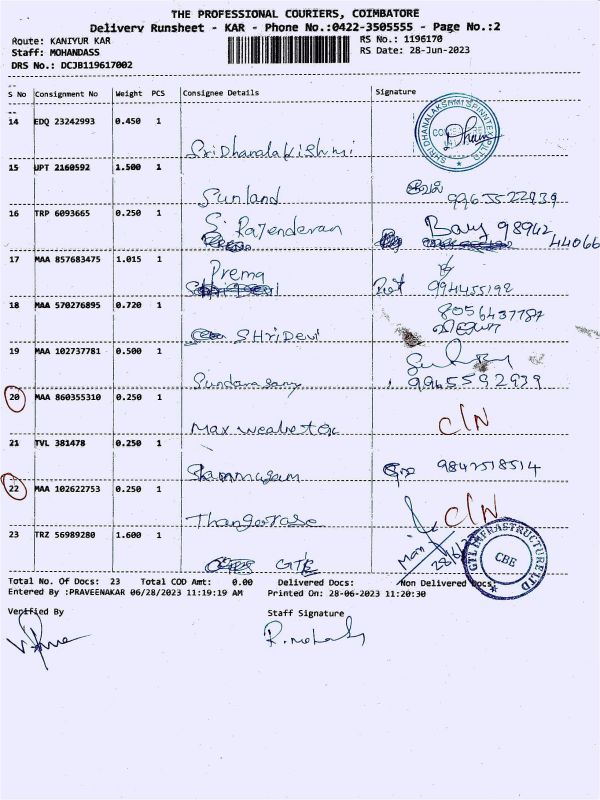 THE PROFESSIONAL COURIERS, COIMBATORE
Delivery Runsheet - KAR - Phone No.:0422-3505555 - Page No.:2
Route: KANIYUR KAR
RS No.: 1196170
Staff: MOHANDASS
RS Date: 28-Jun-2023
DRS No.: DCJB119617002
S No Consignment No Weight PCS Consignee Details Signature
14 EDQ 23242993 0.450 1
Sri Dhanalakishmi
SHRI DHANALAKSHMI SPINNTEX (P) LTD
15 UPT 2160592 1.500 1
Sunland
9965522939
16 TRP 6093665 0.250 1
S. Rajenderan
98942
44066
17 MAA 857683475 1.015 1
Prema
994455192
18 MAA 570276895 0.720 1
SHRiDevi
8056437787
19 MAA 102737781 0.500 1
Sundarasamy
9965592939
20 MAA 860355310 0.250 1
C/N
21 TVL 381478 0.250 1
Shanmugam
9842518514
22 MAA 102622753 0.250 1
C/N
23 TRZ 56989280 1.600 1
GTL
28/6/23
GTL INFRASTRUCTURE LTD
CBE
Total No. Of Docs: 23 Total COD Amt: 0.00 Delivered Docs: Non Delivered Docs:
Entered By :PRAVEENAKAR 06/28/2023 11:19:19 AM Printed On: 28-06-2023 11:20:30
Verified By Staff Signature